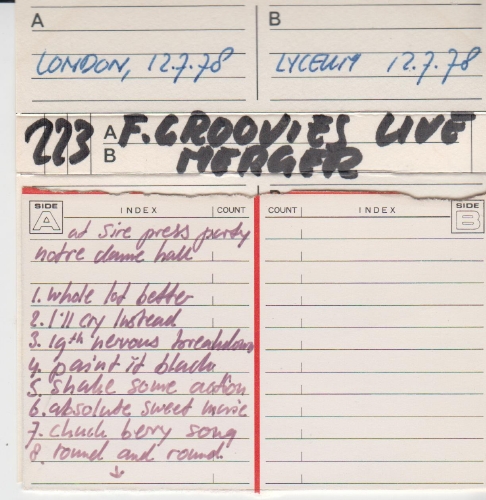 A
B
LONDON, 12.7.78
LYCEUM 12.7.78
223 A F. GROOVIES LIVE
B MERGER
SIDE A INDEX COUNT
COUNT INDEX SIDE B
at sire press party
notre dame hall
1. whole lot better
2. I'll cry instead
3. 19th nervous breakdown
4. paint it black
5. shake some action
6. absolute sweet marie
7. chuck berry song
8. round and round
↓